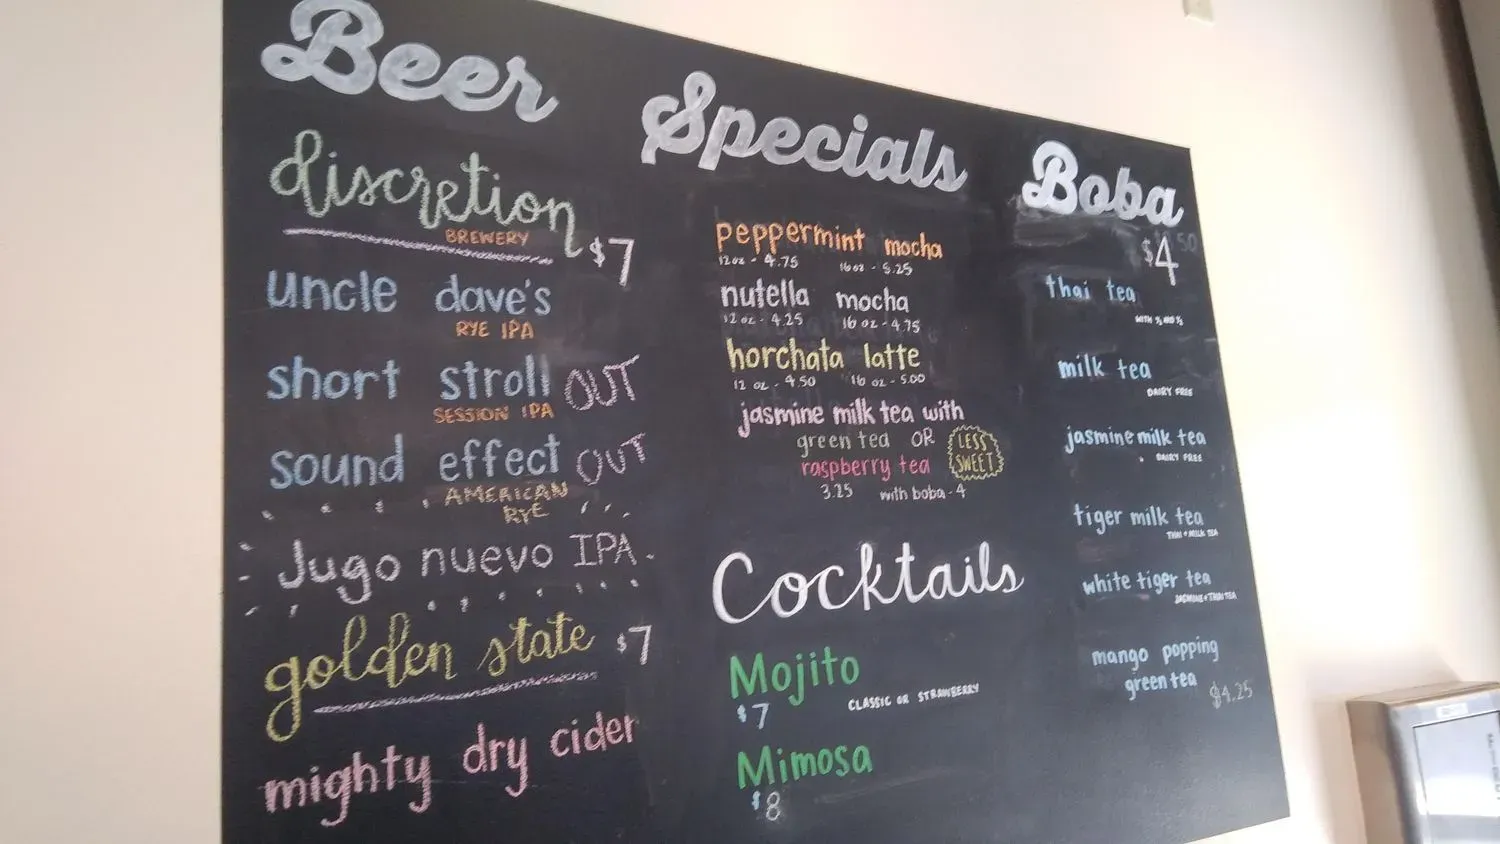 Beer
discretion
BREWERY
$7
uncle dave's
RYE IPA
short stroll OUT
SESSION IPA
sound effect OUT
AMERICAN
RYE
Jugo nuevo IPA
golden state $7
mighty dry cider
Specials
peppermint mocha
12oz - 4.75 16oz - 5.25
nutella mocha
12oz - 4.25 16oz - 4.75
horchata latte
12 oz - 4.50 16 oz - 5.00
jasmine milk tea with
green tea OR
raspberry tea
LESS
SWEET
3.25 with boba - 4
Cocktails
Mojito
$7 CLASSIC OR STRAWBERRY
Mimosa
$8
Boba
$4
thai tea
milk tea
DAIRY FREE
jasmine milk tea
DAIRY FREE
tiger milk tea
THAI + MILK TEA
white tiger tea
JASMINE + THAI TEA
mango popping
green tea $4.25